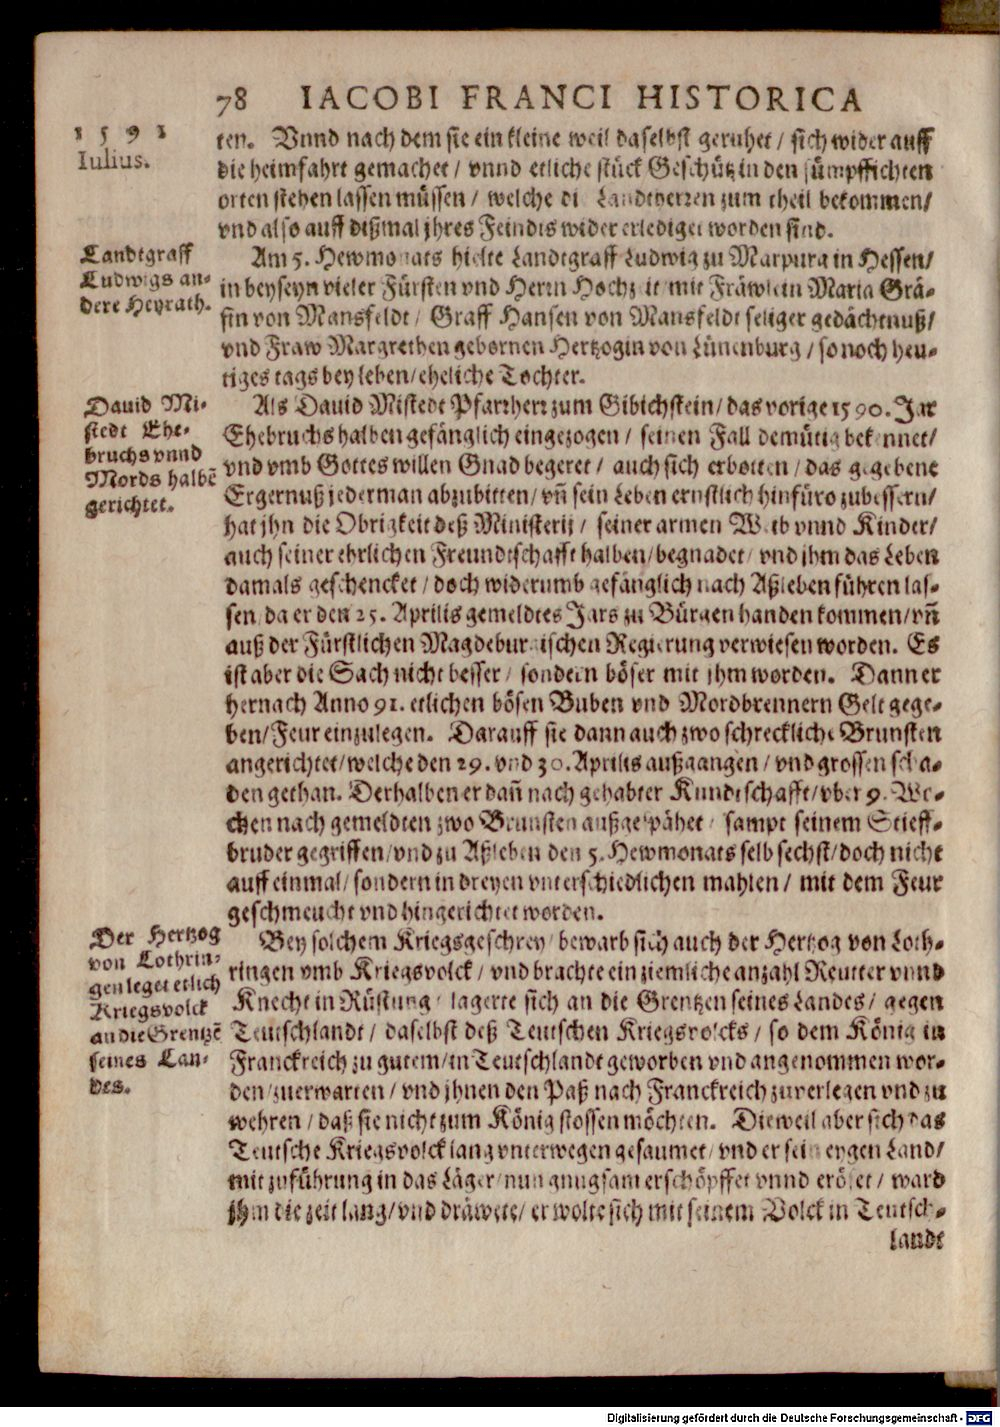 78 IACOBI FRANCI HISTORICA
1 5 9 1
Iulius.
ten. Vnnd nach dem sie ein kleine weil daselbst geruhet / sich wider auff
die heimfahrt gemachet / vnnd etliche stück Geschütz in den sümpffichten
orten stehen lassen müssen / welche di Landtherren zum theil bekommen/
vnd also auff dißmal jhres Feindts wider erlediget worden sind.
Landtgraff
Ludwigs an-
dere Heyrath.
Am 5. Hewmonats hielte Landtgraff Ludwig zu Marpurg in Hessen/
in beyseyn vieler Fürsten vnd Herrn Hochzeit mit Fräwlein Maria Grä-
fin von Mansfeldt / Graff Hansen von Mansfeldt seliger gedächtnuß/
vnd Fraw Margrethen gebornen Hertzogin von Lünenburg / so noch heu-
tiges tags bey leben/eheliche Tochter.
Dauid Mi-
stedt Ehe-
bruchs vnnd
Mords halbē
gerichtet.
Als Dauid Mistedt Pfarrherr zum Gibichstein/das vorige 1590. Jar
Ehebruchs halben gefänglich eingezogen / seinen Fall demütig bekennet/
vnd vmb Gottes willen Gnad begeret / auch sich erbotten / das gegebene
Ergernuß jederman abzubitten/ vñ sein Leben ernstlich hinfüro zubessern/
hat jhn die Obrigkeit deß Ministerij / seiner armen Weib vnnd Kinder/
auch seiner ehrlichen Freundtschafft halben/begnadet/ vnd jhm das Leben
damals geschencket / doch widerumb gefänglich nach Aßleben führen las-
sen da er den 25. Aprilis gemeldtes Jars zu Bürgen handen kommen/vñ
auß der Fürstlichen Magdeburgischen Regierung verwiesen worden. Es
ist aber die Sach nicht besser / sondern böser mit jhm worden. Dann er
hernach Anno 91. etlichen bösen Buben vnd Mordbrennern Gelt gege-
ben/Feur einzulegen. Darauff sie dann auch zwo schreckliche Brunsten
angerichtet/welche den 29. vnd 30. Aprilis außgangen / vnd grossen scha-
den gethan. Derhalben er dañ nach gehabter Kundtschafft/vber 9. Wo-
chen nach gemeldten zwo Brunsten außgespähet / sampt seinem Stieff-
bruder gegriffen/vnd zu Aßleben den 5. Hewmonats selb sechst/doch nicht
auff einmal/sondern in dreyen vnterschiedlichen mahlen / mit dem Feur
geschmeucht vnd hingerichtet worden.
Der Hertzog
von Lothrin-
gen leget etlich
Kriegsvolck
an die Grentzē
seines Lan-
des.
Bey solchem Kriegsgeschrey bewarb sich auch der Hertzog von Loth-
ringen vmb Kriegsvolck / vnd brachte ein ziemliche anzahl Reutter vnnd
Knecht in Rüstung / lagerte sich an die Grentzen seines Landes / gegen
Teutschlandt / daselbst deß Teutschen Kriegsvolcks / so dem König in
Franckreich zu gutem/in Teutschlandt geworben vnd angenommen wor-
den/zuerwarten / vnd jhnen den Paß nach Franckreich zuverlegen vnd zu
wehren / daß sie nicht zum König stossen möchten. Dieweil aber sich das
Teutsche Kriegsvolck lang vnterwegen gesaumet/ vnd er sein eygen Land/
mit zuführung in das Läger/nun gnugsam erschöpffet vnnd eröset / ward
jhm die zeit lang/vnd dräwete/ er wolte sich mit seinem Volck in Teutsch-
landt
Digitalisierung gefördert durch die Deutsche Forschungsgemeinschaft - DFG